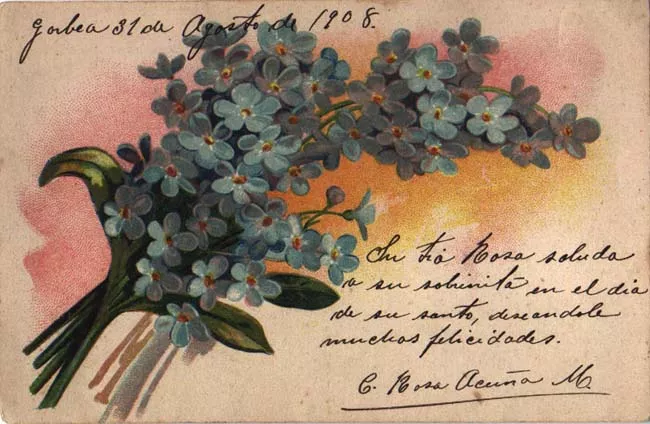 Gorbea 31 de Agosto de 1908.
Su tia Rosa saluda
a su sobrinita en el dia
de su santo, deseandole
muchas felicidades.
C. Rosa Acuña M.